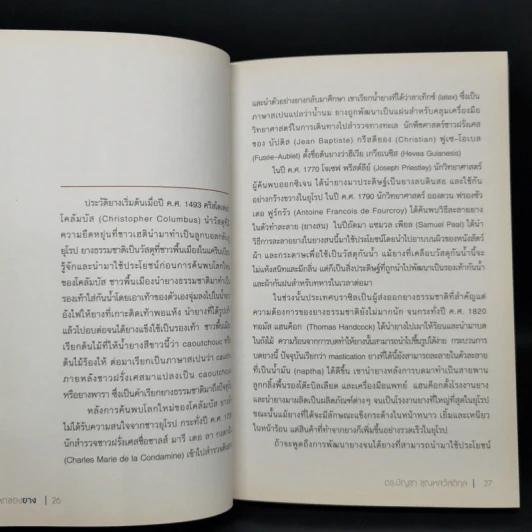 ประวัติยางเริ่มต้นเมื่อปี ค.ศ. 1493 คริสโตเฟอร์
โคลัมบัส (Christopher Columbus) นำวัสดุที่มี
ความยืดหยุ่นที่ชาวเฮติมาทำเป็นลูกบอลกลับ
ยุโรป ยางธรรมชาติเป็นวัสดุที่ชาวพื้นเมืองในแคริบเบียน
รู้จักและนำมาใช้ประโยชน์ก่อนการค้นพบโลกใหม่
โคลัมบัส ชาวพื้นเมืองนำยางธรรมชาติมาทำเป็น
รองเท้าใส่กันน้ำโดยเอาเท้าของตัวเองจุ่มลงไปในน้ำยาง
อังไฟให้ยางที่เกาะติดเท้าพอแห้ง นำยางที่ได้รูปเท้า
แล้วไปอบต่อจนได้ยางแข็งใช้เป็นรองเท้า ชาวพื้นเมือง
เรียกต้นไม้ที่ให้น้ำยางสีขาวนี้ว่า caoutchouc
ต้นไม้ร้องไห้ ต่อมาเรียกเป็นภาษาสเปนว่า
ภายหลังชาวฝรั่งเศสมาแปลงเป็น caoutchouc
หรือยางพารา ซึ่งเป็นคำเรียกยางธรรมชาติมาถึงปัจจุบัน
หลังการค้นพบโลกใหม่ของโคลัมบัส
ไม่ได้รับความสนใจจากชาวยุโรป กระทั่งปี ค.ศ.
นักสำรวจชาวฝรั่งเศสชื่อชาลส์ มารี เดอ ลา
(Charles Marie de la Condamine) เข้าไปสำรวจ
ของยาง | 26
และนำตัวอย่างยางกลับมาศึกษา เขาเรียกน้ำยางที่ได้ว่าลาเท็กซ์ (latex) ซึ่งเป็น
ภาษาสเปนแปลว่าน้ำนม ยางถูกพัฒนาเป็นแผ่นสำหรับคลุมเครื่องมือ
วิทยาศาสตร์ในการเดินทางไปสำรวจทางทะเล นักพืชศาสตร์ชาวฝรั่งเศส
ของ บัปติส (Jean Baptiste) กริสตียอง (Christian) ฟูเซ-โอเบล
(Fusée-Aublet) ตั้งชื่อต้นยางว่าฮีเวีย เกวียเนซิส (Hevea Guianesis)
ในปี ค.ศ. 1770 โจเซฟ พรีสต์ลีย์ (Joseph Priestley) นักวิทยาศาสตร์
ผู้ค้นพบออกซิเจน ได้นำยางมาประดิษฐ์เป็นยางลบดินสอ และใช้กัน
อย่างกว้างขวางในยุโรป ในปี ค.ศ. 1790 นักวิทยาศาสตร์ อองตวน ฟรองซัว
เดอ ฟูร์ครัว (Antoine Francois de Fourcroy) ได้ค้นพบวิธีละลายยาง
ในตัวทำละลาย (ยางสน) ในปีถัดมา แซมวล เพียล (Samuel Peal) ได้นำ
วิธีการละลายยางในยางสนนี้มาใช้ประโยชน์โดยนำไปอาบบนผิวรองหนังสัตว์
ผ้า และกระดาษเพื่อใช้เป็นวัสดุกันน้ำ แม้ยางที่เคลือบวัสดุกันน้ำนี้จะ
ไม่แห้งสนิทและมีกลิ่น แต่ก็เป็นสิ่งประดิษฐ์ที่ถูกนำไปพัฒนาเป็นรองเท้ากันน้ำ
และผ้ากันฝนสำหรับทหารในเวลาต่อมา
ในช่วงนั้นประเทศบราซิลเป็นผู้ส่งออกยางธรรมชาติที่สำคัญแต่
ความต้องการของยางธรรมชาติยังไม่มากนัก จนกระทั่งปี ค.ศ. 1820
ทอมัส แฮนค็อก (Thomas Handcock) ได้นำยางไปเผาให้ร้อนและนำมาบด
ในถังไม้ ความร้อนจากการบดทำให้ยางนั้นสามารถนำไปขึ้นรูปได้ง่าย กระบวนการ
บดยางนี้ ปัจจุบันเรียกว่า mastication ยางที่ได้นี้ยังสามารถละลายในตัวละลาย
ที่เป็นน้ำมัน (naptha) ได้ดีขึ้น เขานำยางหลังการบดมาทำเป็นสายพาน
ลูกกลิ้งพื้นรองโต๊ะบิลเลียด และเครื่องมือแพทย์ แฮนค็อกตั้งโรงงานยาง
และนำยางมาผลิตเป็นผลิตภัณฑ์ต่างๆ จนเป็นโรงงานยางที่ใหญ่ที่สุดในยุโรป
ขณะนั้นแม้ยางที่ได้จะมีลักษณะแข็งกระด้างในหน้าหนาว เยิ้มและเหนียว
ในหน้าร้อน แต่สินค้าที่ทำจากยางก็เพิ่มขึ้นอย่างรวดเร็วในยุโรป
ถ้าจะพูดถึงการพัฒนายางจนได้ยางที่สามารถนำมาใช้ประโยชน์
ดร.บัญชา ชุณหสวัสดิกุล | 27